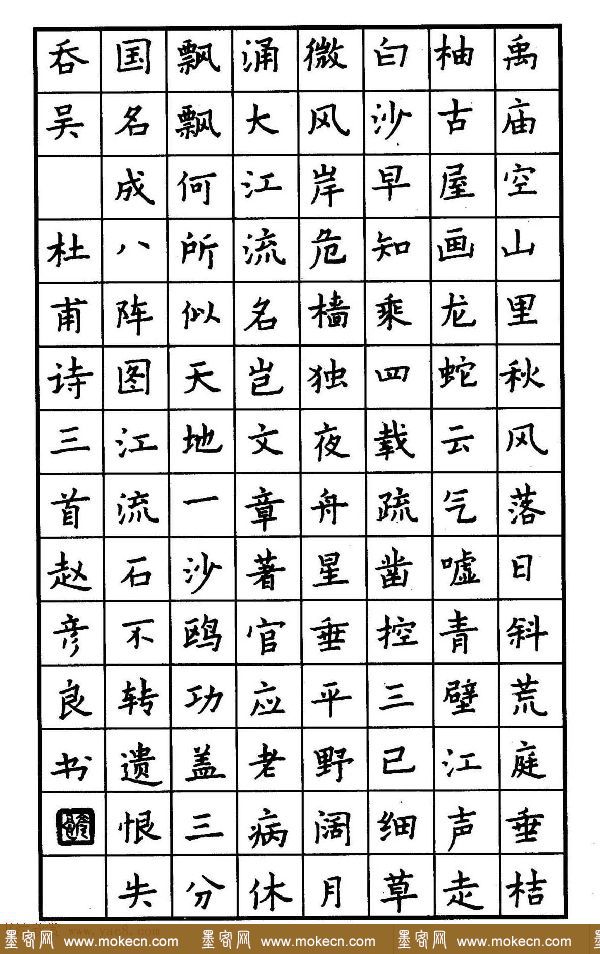 禹庙空山里秋风落日斜荒庭垂桔
柚古屋画龙蛇云气嘘青壁江声走
白沙早知乘四载疏凿控三已细草
微风岸危樯独夜舟星垂平野阔月
涌大江流名岂文章著官应老病休
飘飘何所似天地一沙鸥功盖三分
国名成八阵图江流石不转遗恨失
吞吴 杜甫诗三首赵彦良书
墨客网 www.mokecn.com 墨客网 www.mokecn.com 墨客网 www.mokecn.com